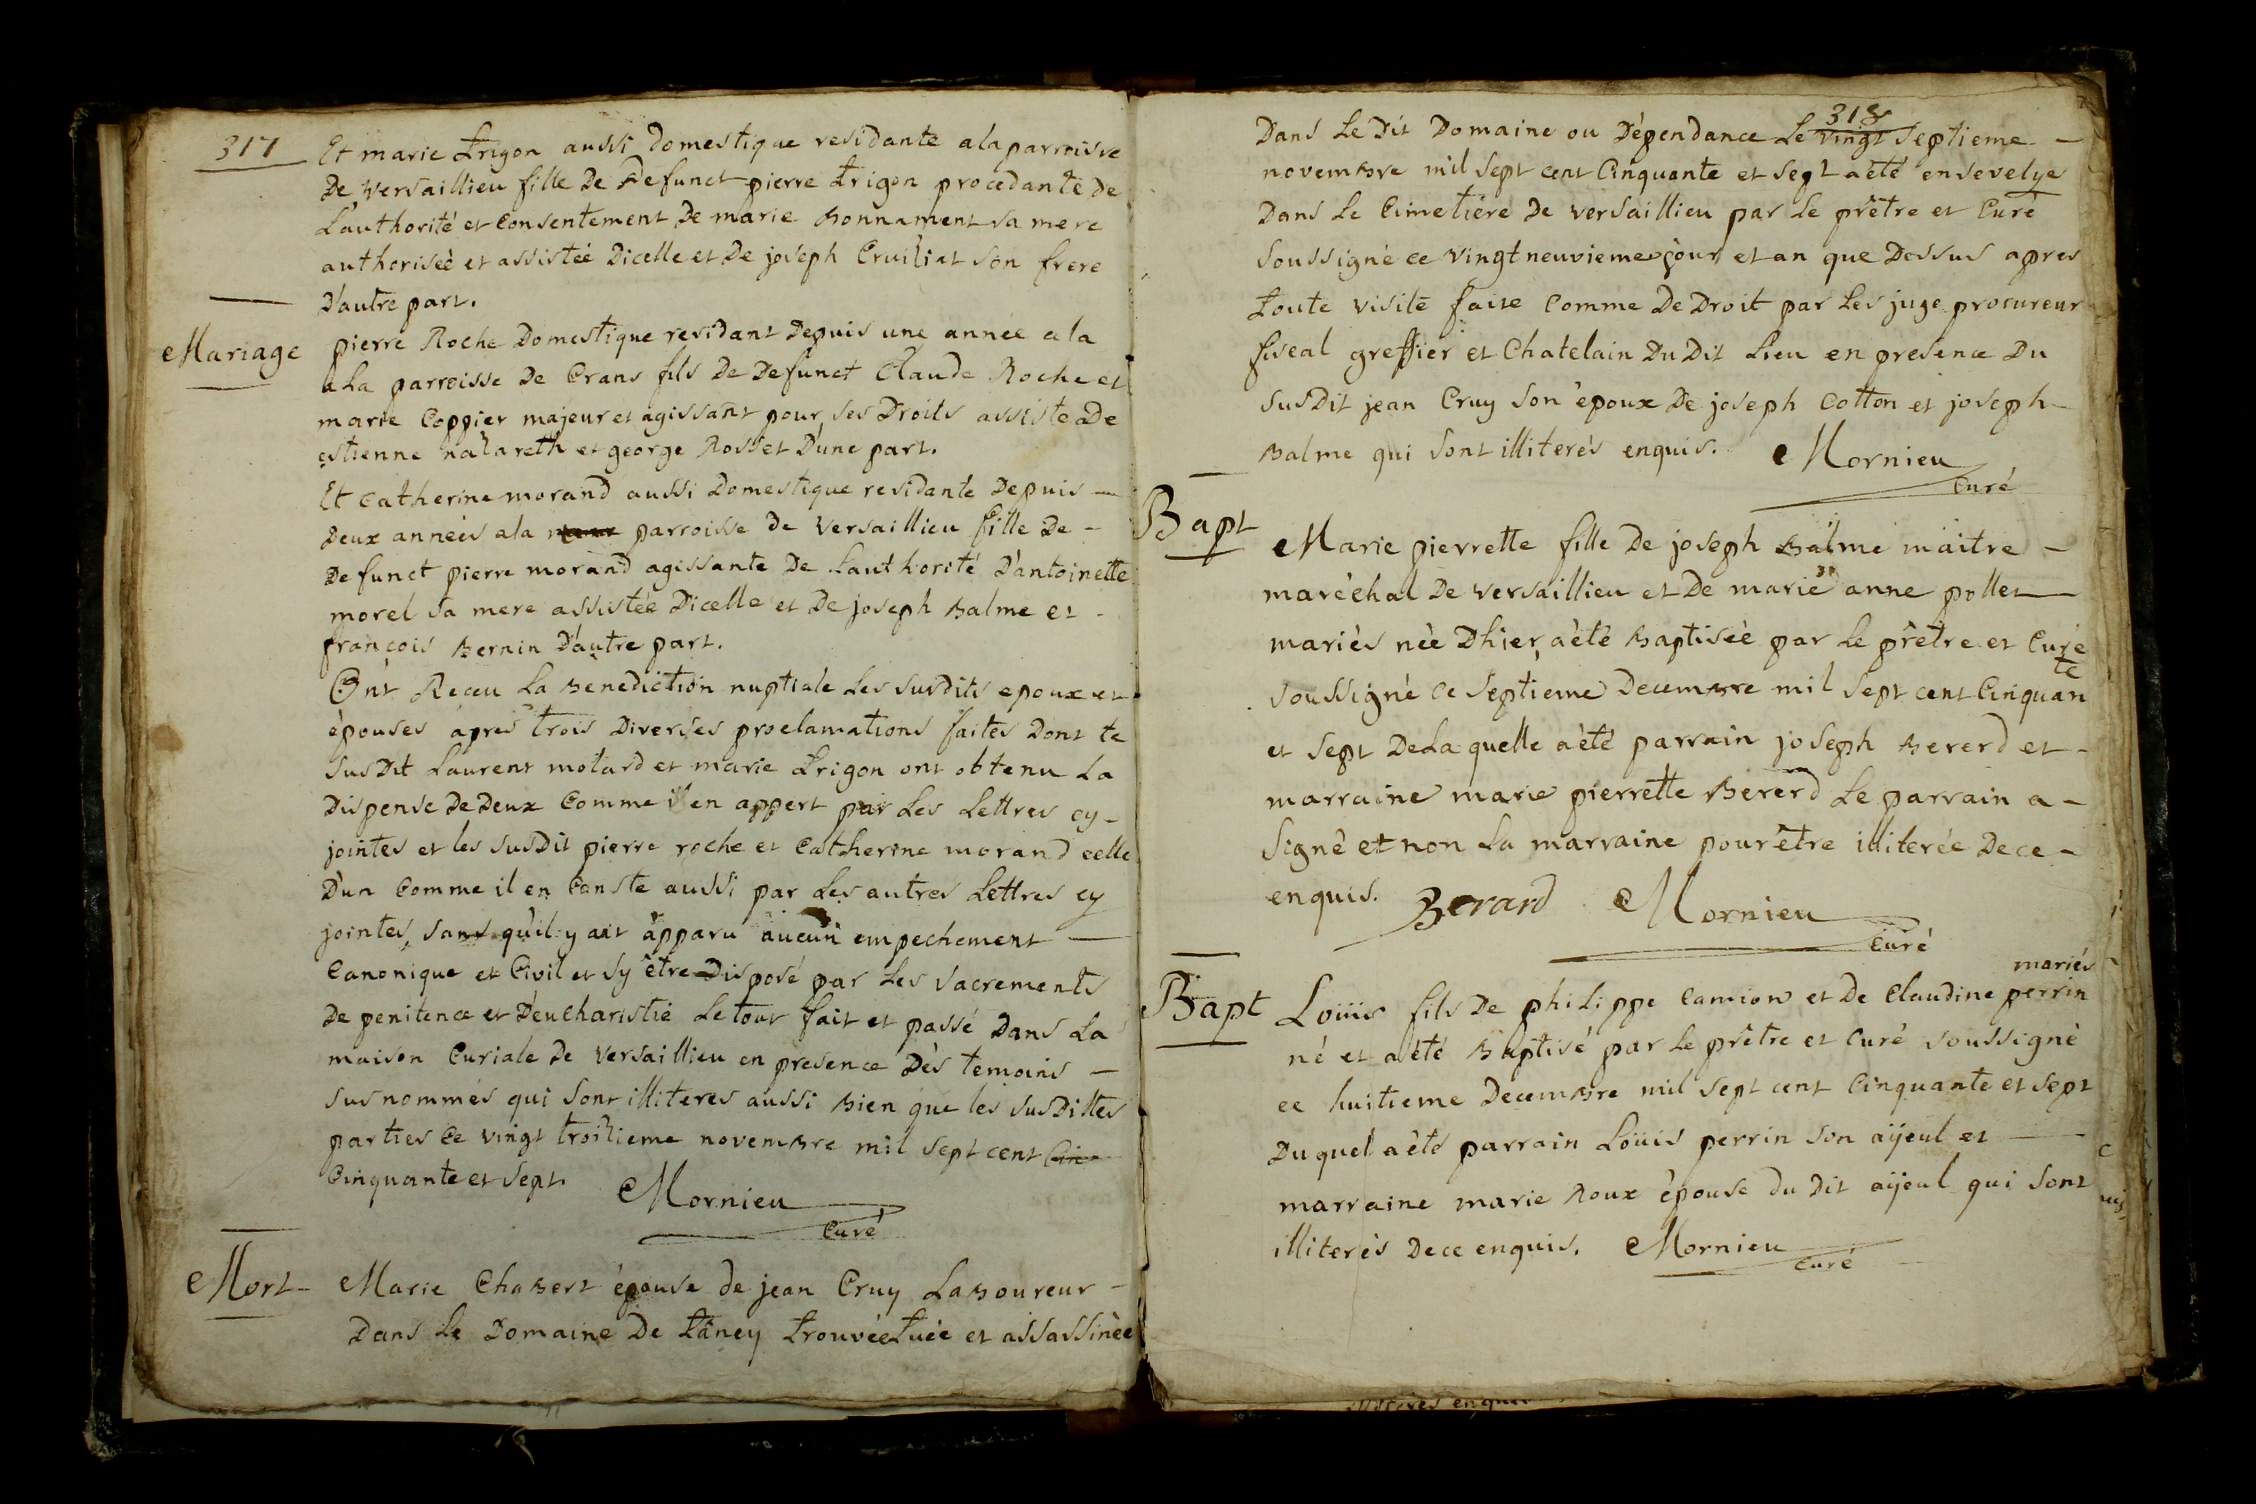 317
Et marie trigon aussi Domestique residante a la parroisse
De versaillieu fille De Defunct pierre trigon procedante De
L'authorité et Consentement De marie Bonnament sa mere
authoriseè et assistée Dicelle et De joseph Cruiliat son frere
D'autre part.
Mariage
pierre Roche Domestique residant Depuis une année a la
a La parroisse De Crans fils De Defunct Claude Roche et
marie Coppier majeur et agissant pour ses Droits assiste De
estienne nazareth et george Rosset D'une part.
Et catherine morand aussi Domestique residante Depuis —
Deux annees a la parroisse De versaillieu fille De -
Defunct pierre morand agissante De Lauthorité D'antoinette
morel sa mere assistée Dicelle et De joseph Balme et -
françois Bernin D'autre part.
Ont Receu La Benediction nuptiale Les susdits epoux et
épouses apres trois Diverses proclamations faites Dont te
susDit Laurent molard et marie trigon ont obtenu La
Dispense De Deux Comme il en appert par Les Lettres cy -
jointes et les susDit pierre roche et Catherine morand celle
D'un Comme il en Conste aussi par Les autres Lettres cy
jointes, sans qu'il y ait apparu aucun empechement —
Canonique et Civil et sy être Disposé par Les sacrements
De penitence et D'eucharistie Le tout fait et passé Dans La
maison Curiale De versaillieu en presence Dès temoins —
susnommés qui sont illiteres aussi Bien que les susDittes
parties Ce vingt troizieme novemBre mil sept cent Cin
Cinquante et sept. Mornieu
Curé
Mort -
Marie ChaBert épouse de jean Cruy LaBoureur -
Dans Le Domaine De tâney trouvée tuée et assassinèe
318
Dans Le Dit Domaine ou Dépendance Le vingt septieme —
novemBre mil sept cent Cinquante et sept a été ensevelye
Dans Le Cimetiére De versaillieu par Le prêtre et Curé
soussigné ce vingt neuvieme jour et an que Dessus apres
toute visite faite Comme De Droit par Les juge procureur
fiscal greffier et Chatelain Du Dit Lieu en presence Du
susDit jean Cruy son époux De joseph Cotton et joseph -
Balme qui sont illiterés enquis. Mornieu
Curé
Bapt
Marie pierrette fille De joseph Balme maitre -
maréchal De versaillieu et De marie anne pollet —
mariés née Dhier, a été Baptisée par Le prêtre et Curé
soussigné Ce septieme DecemBre mil sept cent Cinquan
te
et sept De Laquelle a été parrain joseph Bererd et -
marraine marie pierrette Bererd Le parrain a -
signé et non La marraine pour être illiterée De ce -
enquis. Berard Mornieu
Curé
Bapt
mariés
Loüis fils De philippe Camion et De Claudine perrin
né et a été Baptisé par Le prêtre et Curé soussigné
ce huitieme DecemBre mil sept cent Cinquante et sept
Duquel a été parrain Loüis perrin son aÿeul et —
marraine marie Roux épouse du Dit aÿeul qui sont
illiterés De ce enquis. Mornieu
Curé